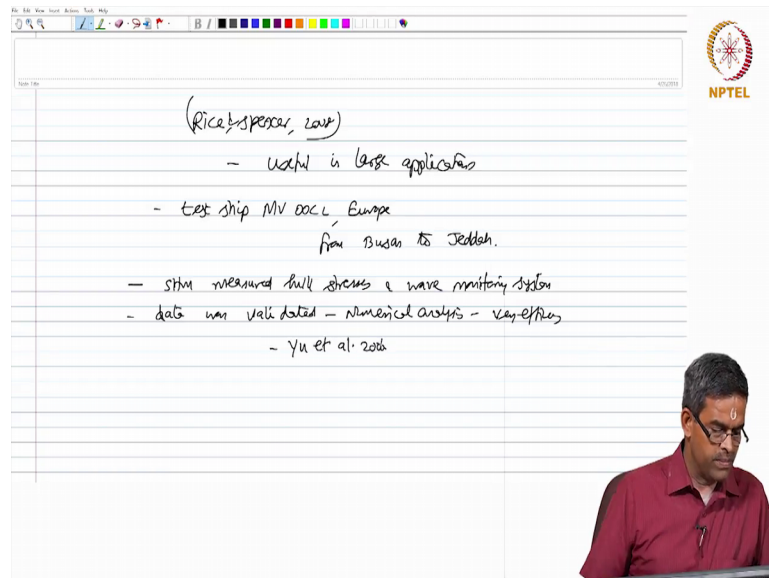 File Edit View Insert Actions Tools Help
B I
NPTEL
Note Title
(Rice & Spencer, 2008)
- useful in large application
- test ship MV OOCL, Europe
from Busan to Jeddah.
- SHM measured hull stresses & wave monitoring system
- data was validated - Numerical analysis - very effcy
- Yu et al. 2006